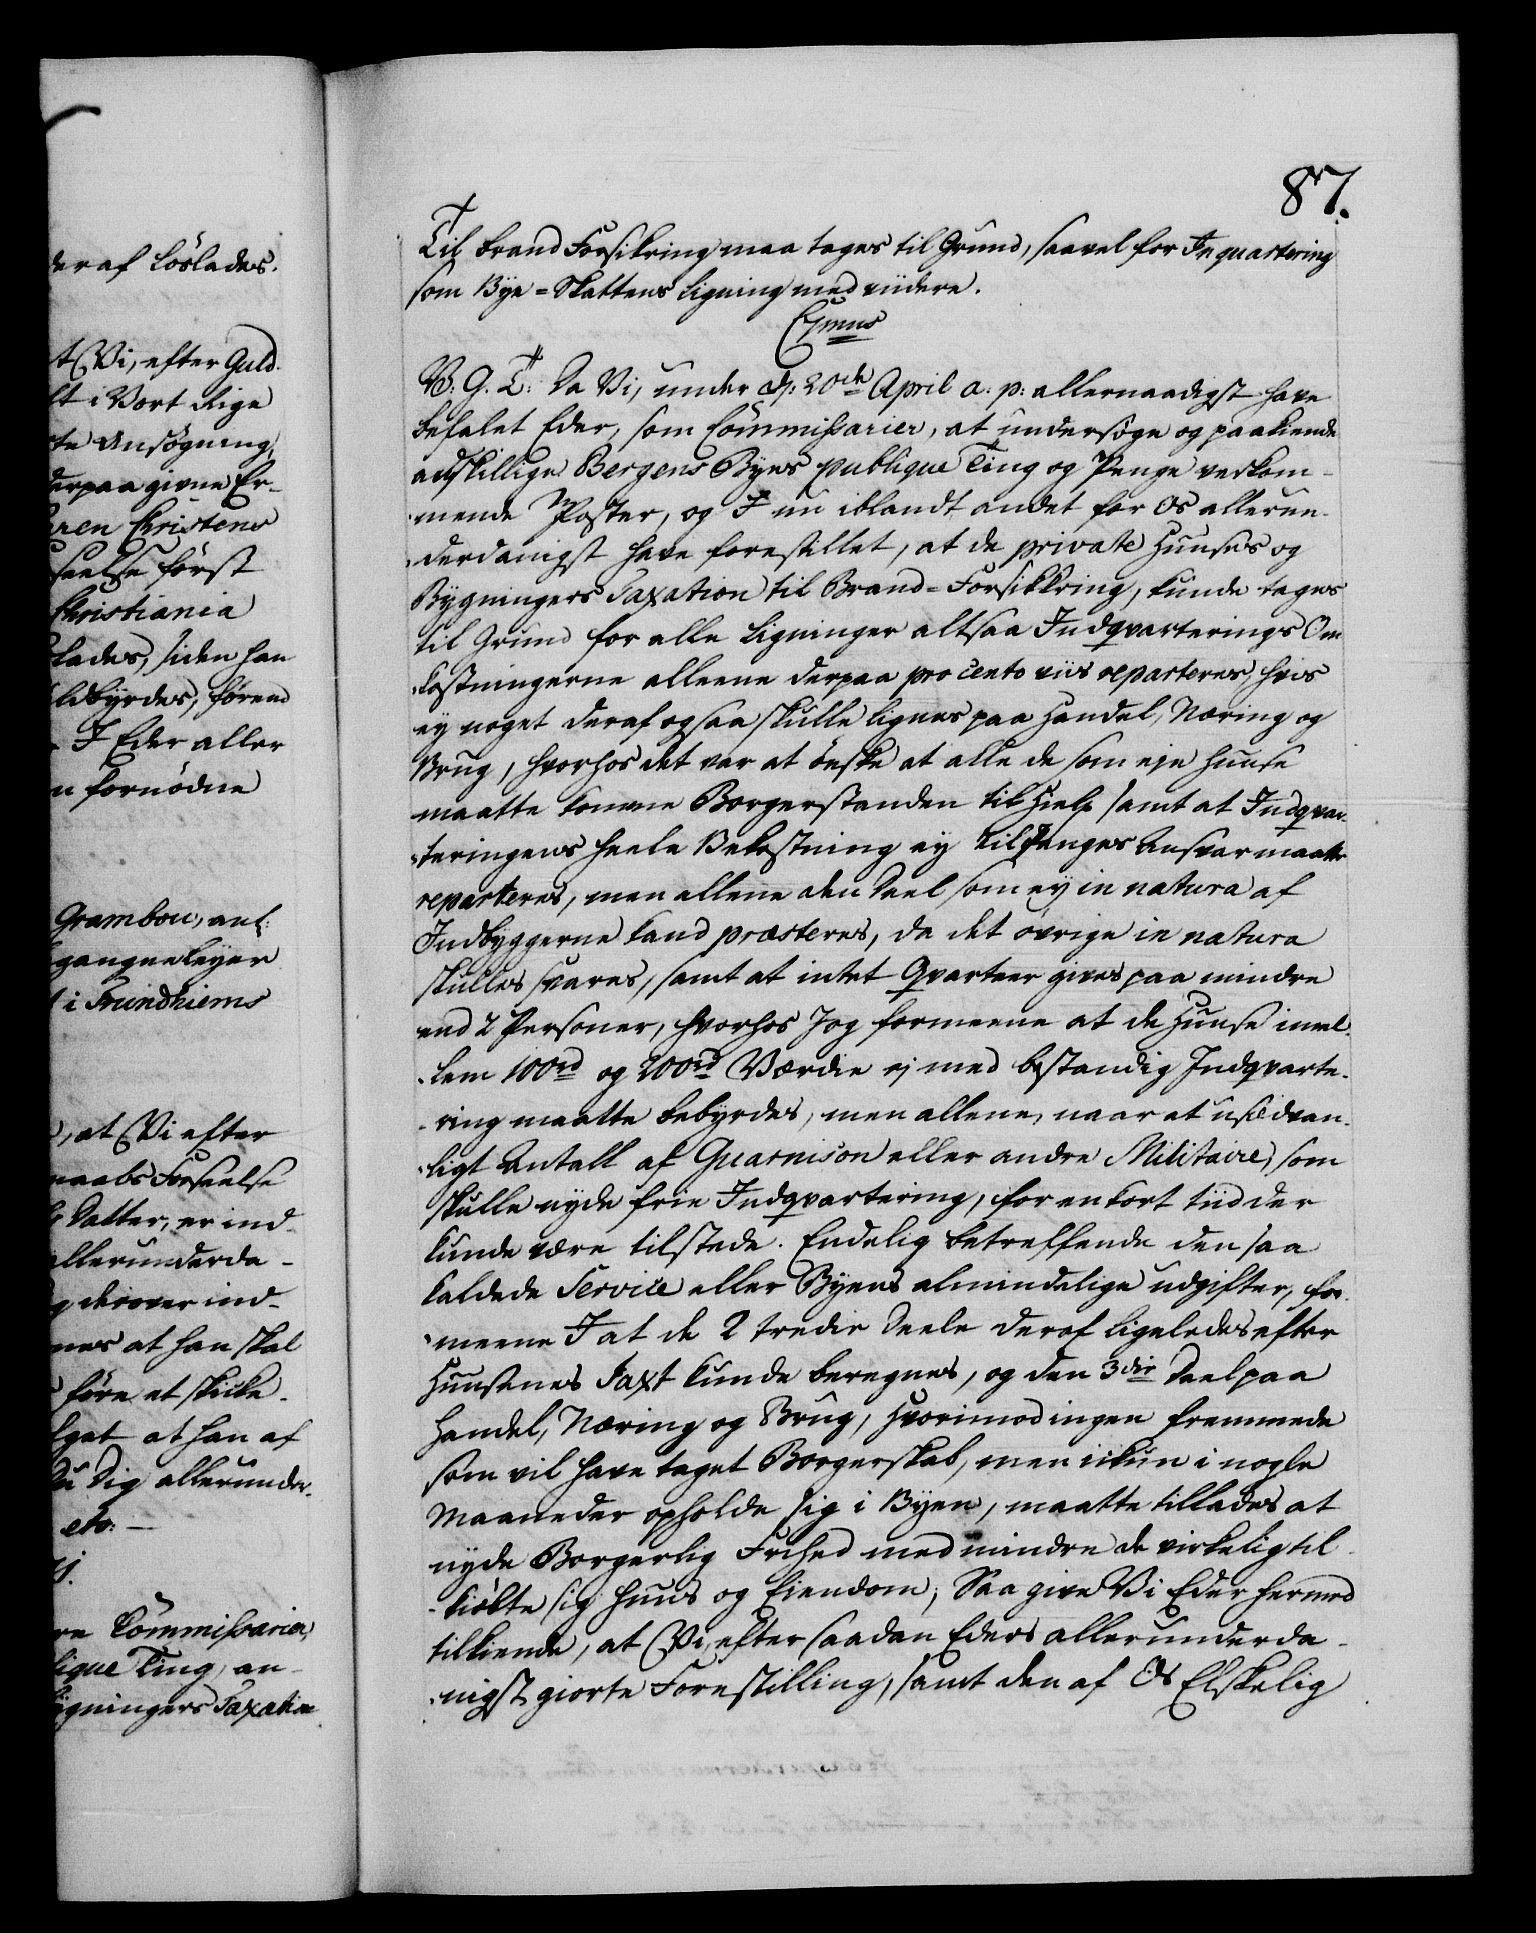 deraf löslades.
t Vi, efter Guld
lt i Vort Rige
te Ansögning,
derpaa givne Er-
ören Christens
seelse först
Christiania
lades, siden han
ldbyrdes, förend
I Eder aller
n fornödne
Grambou, anl:
gangne leyer
i Trundhiems
, at Vi efter
maabs Forseelse
Datter, er ind-
allerunderda-
g derover ind-
nes at han skal
före et skicke-
lget at han af
Du Dig allerunder-
etc. —
re Commissarier,
lique Ting, an-
ygningers Taxation
87.
Til Brand Forsikring maa tages til Grund, saavel for Inquartering
som Bye=Skattens Ligning med viidere.
V. G. T: Da Vi, under d: 20de April a. p: allernaadigst have
befalet Eder, som Commissarier, at undersöge og paakiende
adskillige Bergens Byes publique Ting og Penge vedkom-
mende Poster, og I nu iblandt andet for Os allerun-
derdanigst have forestillet, at de private Huuses og
Bygningers Taxation til Brand=Forsikkring, kunde tages
til Grund for alle Ligninger altsaa Indqvarterings Om
kostningerne alleene derpaa pro cento viis reparteres, hvis
ey noget deraf ogsaa skulle lignes paa Handel, Næring og
Brug, hvorhos det var at önske at alle de som eje Huuse
maatte komme Borgerstanden til Hielp samt at Indqvar-
teringens heele Bekostning ey til Penges Ansvar maatte
reparteres, men allene den Deel som ey in natura af
Indbyggerne kand præsteres, da det övrige in natura
skulles svares, samt at intet Qvarteer gives paa mindre
end 2 Personer, hvorhos I og formeene at de Huuse imel-
lem 100rd og 200rd Værdie ej med bestandig Indqvarte-
ring maatte bebyrdes, men allene, naar et usædvan-
ligt Antall af Guarnison eller andre Militaire, som
skulle nyde frie Indqvartering, for en kort tiid der
kunde være tilstede. Endelig betreffende den saa
kaldede Service eller Byens almindelige udgifter, for-
meene I at de 2 tredie Deele deraf ligeledes efter
Huusenes Taxt kunde beregnes, og den 3die Deel paa
Handel, Næring og Brug, hvorimod ingen fremmede
som vil have taget Borgerskab, men ickun i nogle
Maaneder opholde sig i Byen, maatte tillades at
nyde Borgerlig Frihed med mindre de virkelig til-
kiöbte sig Huus og Eiendom; Saa give Vi Eder hermed
tilkiende, at Vi, efter saadan Eders allerunderda-
nigst giorte Forestilling, samt den af Os Elskelig